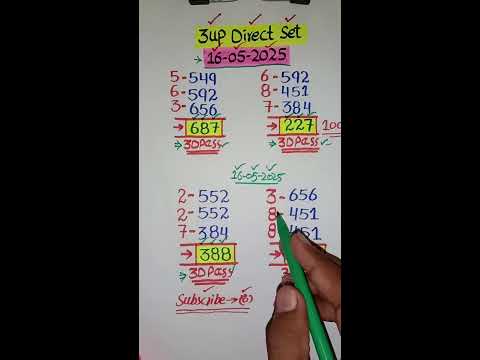 3up Direct Set
→ 16-05-2025
5-549
6-592
3-656
→ 687
→ 3D Pass
6-592
8-451
7-384
→ 227 100
→ 3D Pass
16-05-2025
2-552
2-552
7-384
→ 388
→ 3D Pass
3-656
8 451
8 451
Subscribe →